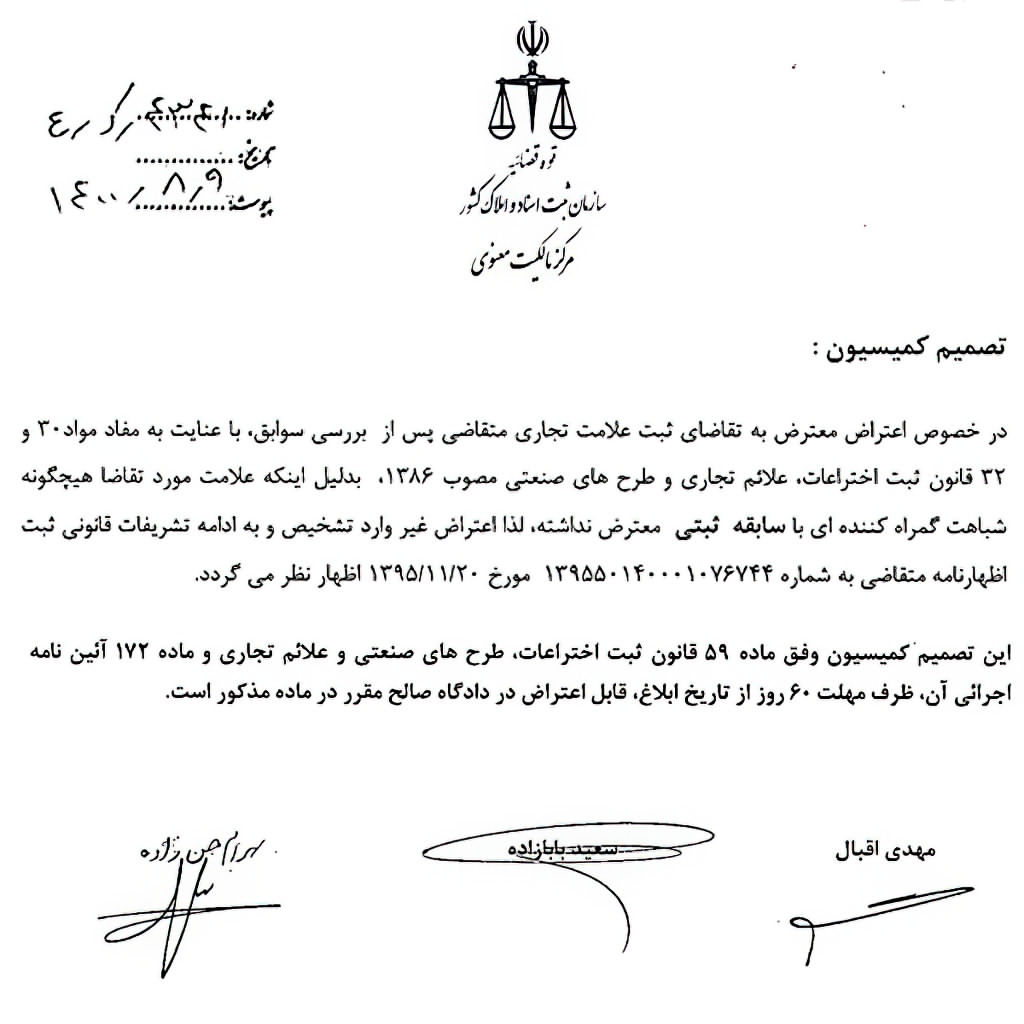 قوه قضائیه
سازمان ثبت اسناد و املاک کشور
مرکز مالکیت معنوی
شماره:
تاریخ:
پیوست: ۱۴۰۰/۸/۹
تصمیم کمیسیون :
در خصوص اعتراض معترض به تقاضای ثبت علامت تجاری متقاضی پس از بررسی سوابق، با عنایت به مفاد مواد۳۰ و
۳۲ قانون ثبت اختراعات، علائم تجاری و طرح های صنعتی مصوب ۱۳۸۶، بدلیل اینکه علامت مورد تقاضا هیچگونه
شباهت گمراه کننده ای با سابقه ثبتی معترض نداشته، لذا اعتراض غیر وارد تشخیص و به ادامه تشریفات قانونی ثبت
اظهارنامه متقاضی به شماره ۱۳۹۵۵۰۱۴۰۰۰۱۰۷۶۷۴۴ مورخ ۱۳۹۵/۱۱/۲۰ اظهار نظر می گردد.
این تصمیم کمیسیون وفق ماده ۵۹ قانون ثبت اختراعات، طرح های صنعتی و علائم تجاری و ماده ۱۷۲ آئین نامه
اجرائی آن، ظرف مهلت ۶۰ روز از تاریخ ابلاغ، قابل اعتراض در دادگاه صالح مقرر در ماده مذکور است.
مهدی اقبال
سعید بابازاده